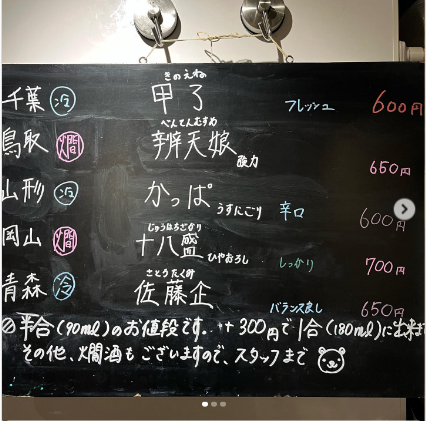 きのえね
千葉 冷 甲子 フレッシュ 600円
べんてんむすめ
鳥取 燗 辨天娘 酸力 650円
山形 冷 かっぱ うすにごり 辛口 600円
じゅうはちざかり
岡山 燗 十八盛 ひやおろし しっかり 700円
さとうたくみ
青森 冷 佐藤企 バランス良し 650円
半合(90ml)のお値段です。+300円で1合(180ml)に出来ま
その他、燗酒もございますので、スタッフまで